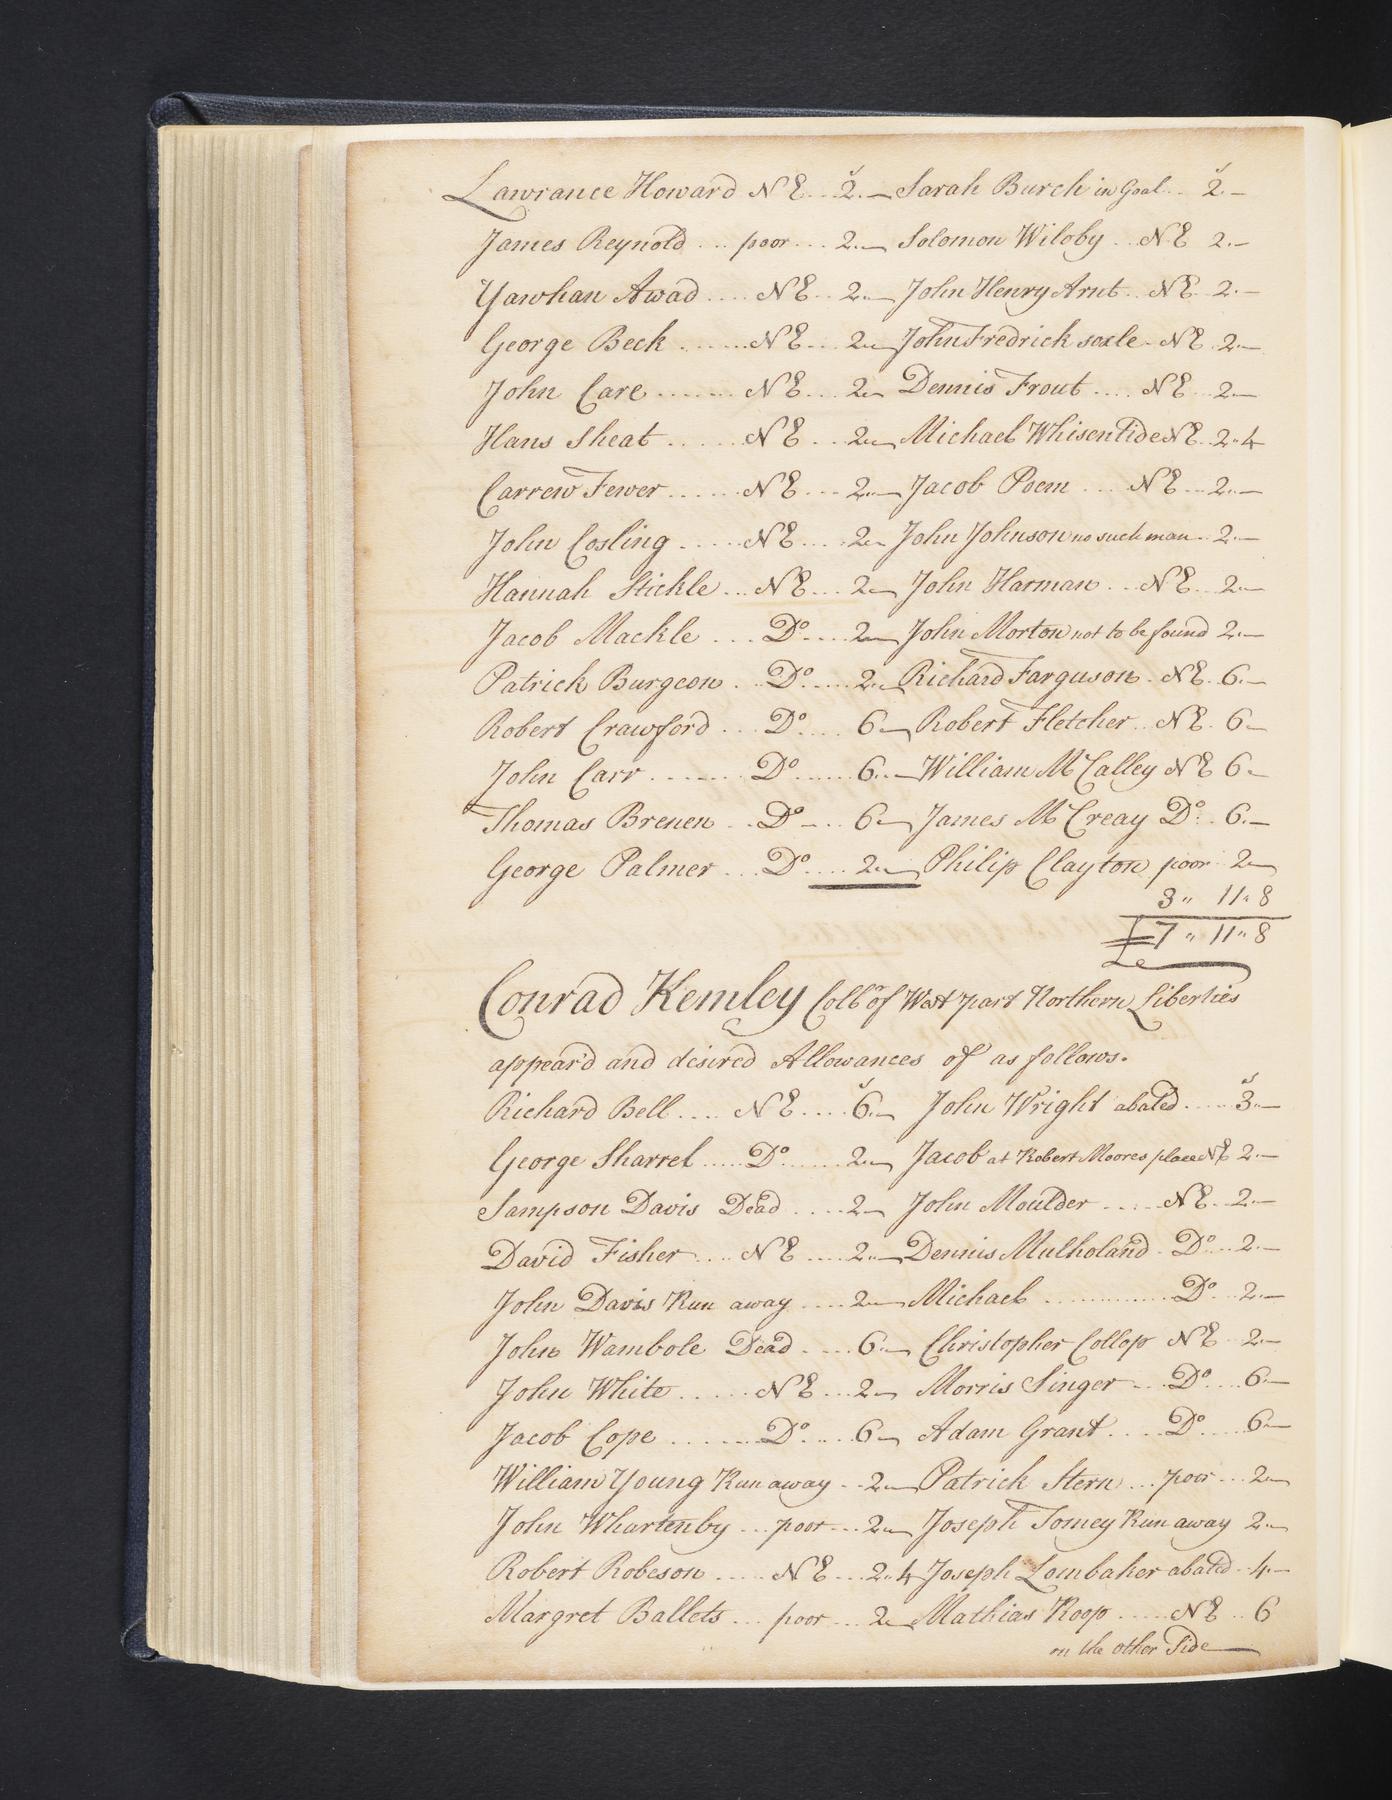 Lawrance Howard N E... 2.— Sarah Burch in Goal... 2.—
James Reynold... poor... 2.— Solomon Wiloby... N E 2.—
Yawhan Awad.... N E.. 2.— John Henry Arnt.. N E.. 2.—
George Beck.......N E.... 2.— John Fredrick soxle - N E. 2.—
John Care........ N E.... 2.— Dennis Frout.... N E... 2.—
Hans Sheat...... N E.... 2.— Michael Whisentide N E.. 2..4
Carrew Fewer...... N E.... 2.— Jacob Poem.... N E... 2.—
John Cosling..... N E.... 2.— John Johnson no such man. 2.—
Hannah Stickle... N E... 2.— John Harman... N E... 2.—
Jacob Mackle.... Do.... 2.— John Morton not to be found 2.—
Patrick Burgeon.. Do..... 2.— Richard Farguson. N E. 6.—
Robert Crawford.... Do.... 6.— Robert Fletcher.. N E. 6.—
John Carr........ Do...... 6.— William McCalley N E 6.—
Thomas Brenen.. Do.... 6.— James McCreay Do.. 6.—
George Palmer... Do.... 2.— Philip Clayton poor. 2.—
3 " 11 " 8
£7 " 11 " 8
Conrad Kemley Collr of West part Northern Liberties
appear'd and desired Allowances of as follows.
Richard Bell.... N E.... 6.— John Wright abated..... 3.—
George Sharrel..... Do...... 2.— Jacob at Robert Moores place N E 2.—
Sampson Davis Dead.... 2.— John Moulder..... N E.. 2.—
David Fisher.... N E.... 2.— Dennis Mulholand. Do... 2.—
John Davis Run away.... 2.— Michael............. Do.. 2.—
John Wambole Dead.... 6.— Christopher Collop N E. 2.—
John White...... N E... 2.— Morris Singer... Do.... 6.—
Jacob Cope....... Do.... 6.— Adam Grant.... Do.... 6.—
William Young Run away.. 2.— Patrick Stern... poor... 2.—
John Whartenby... poor... 2.— Joseph Tomey Run away 2.—
Robert Robeson..... N E... 2..4 Joseph Lombaker abated.. 4.—
Margret Ballets... poor... 2.— Mathias Koop..... N E.. 6
on the other Side